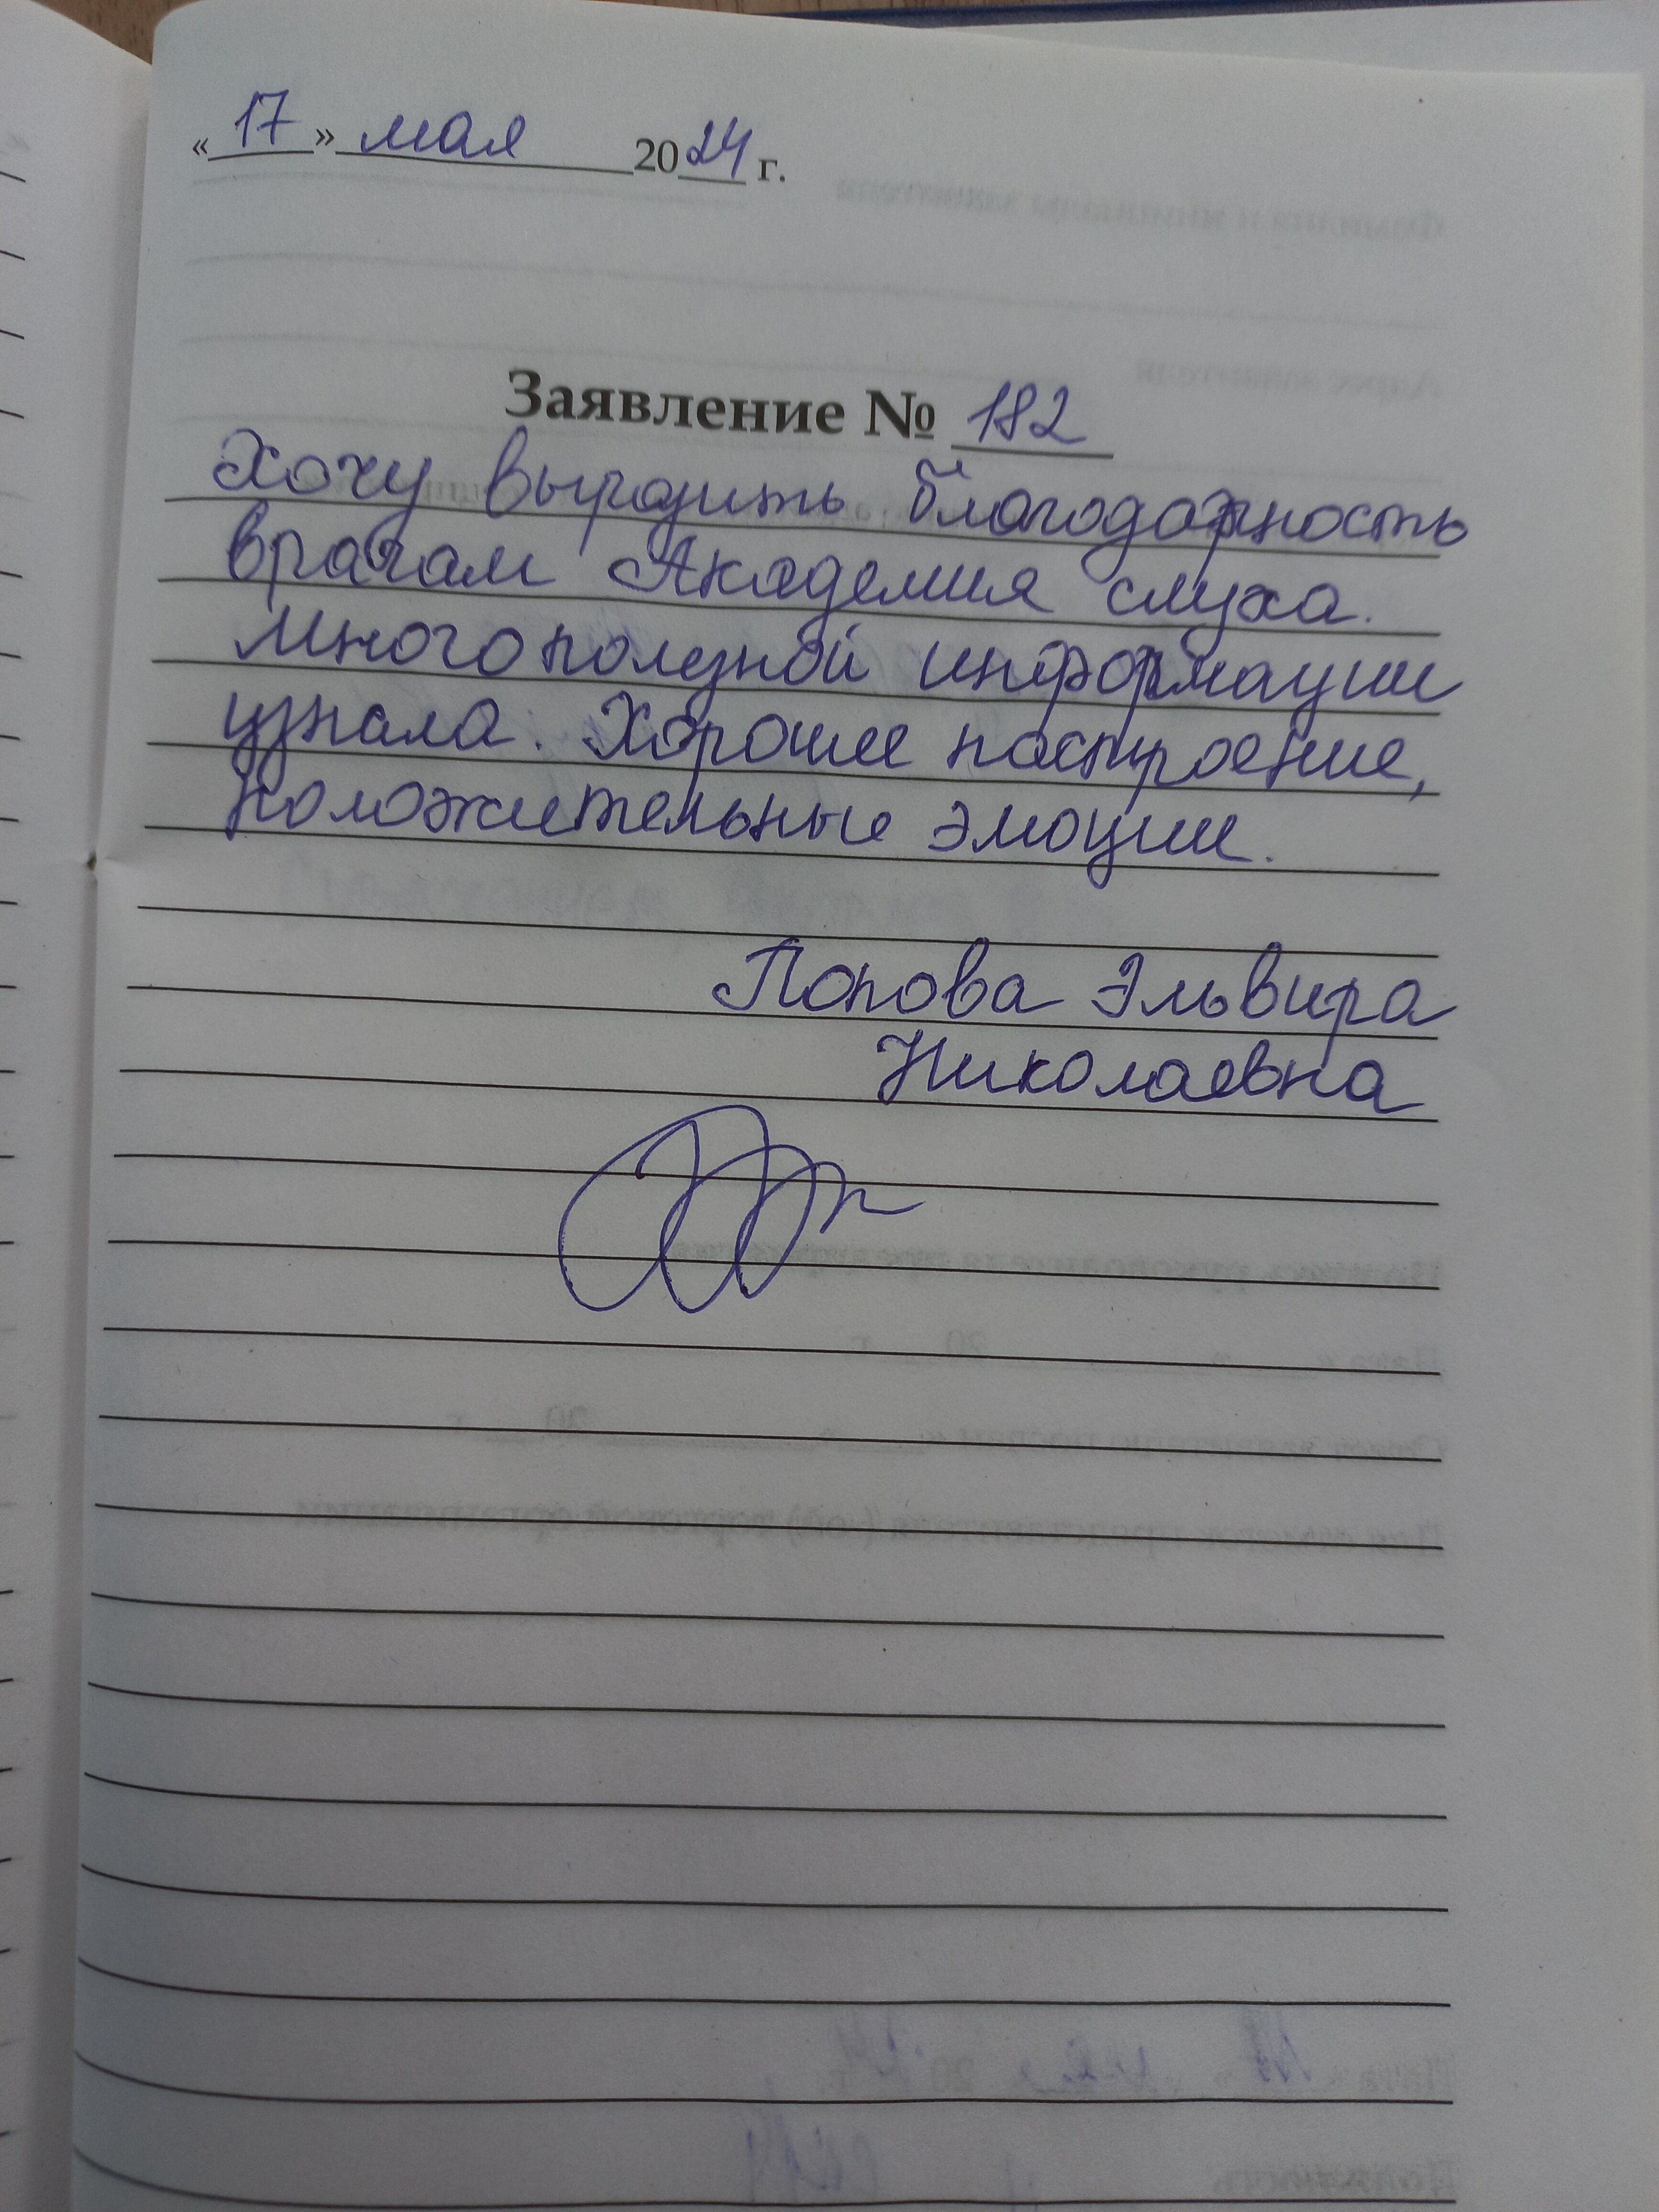 «17» мая 2024 г.
Заявление № 182
Хочу выразить благодарность
врачам Академия слуха.
Много полезной информации
узнала. Хорошее настроение,
положительные эмоции.
Попова Эльвира
Николаевна